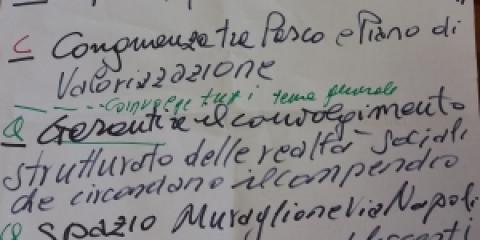 C Congruenza tra Parco e Piano di
Valorizzazione
tema generale
Garantire il coinvolgimento
strutturato delle realtà sociali
che circondano il compendio
Spazio Muraglione Via Napoli